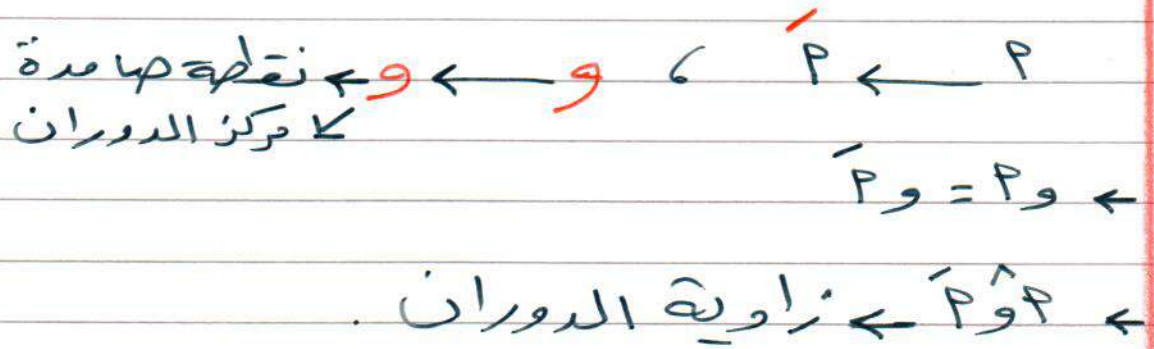 م ← مَ ، و ← و ← نقطة صامدة
↙ مركز الدوران
← وم = ومَ
← م وُ̂ مَ ← زاوية الدوران .